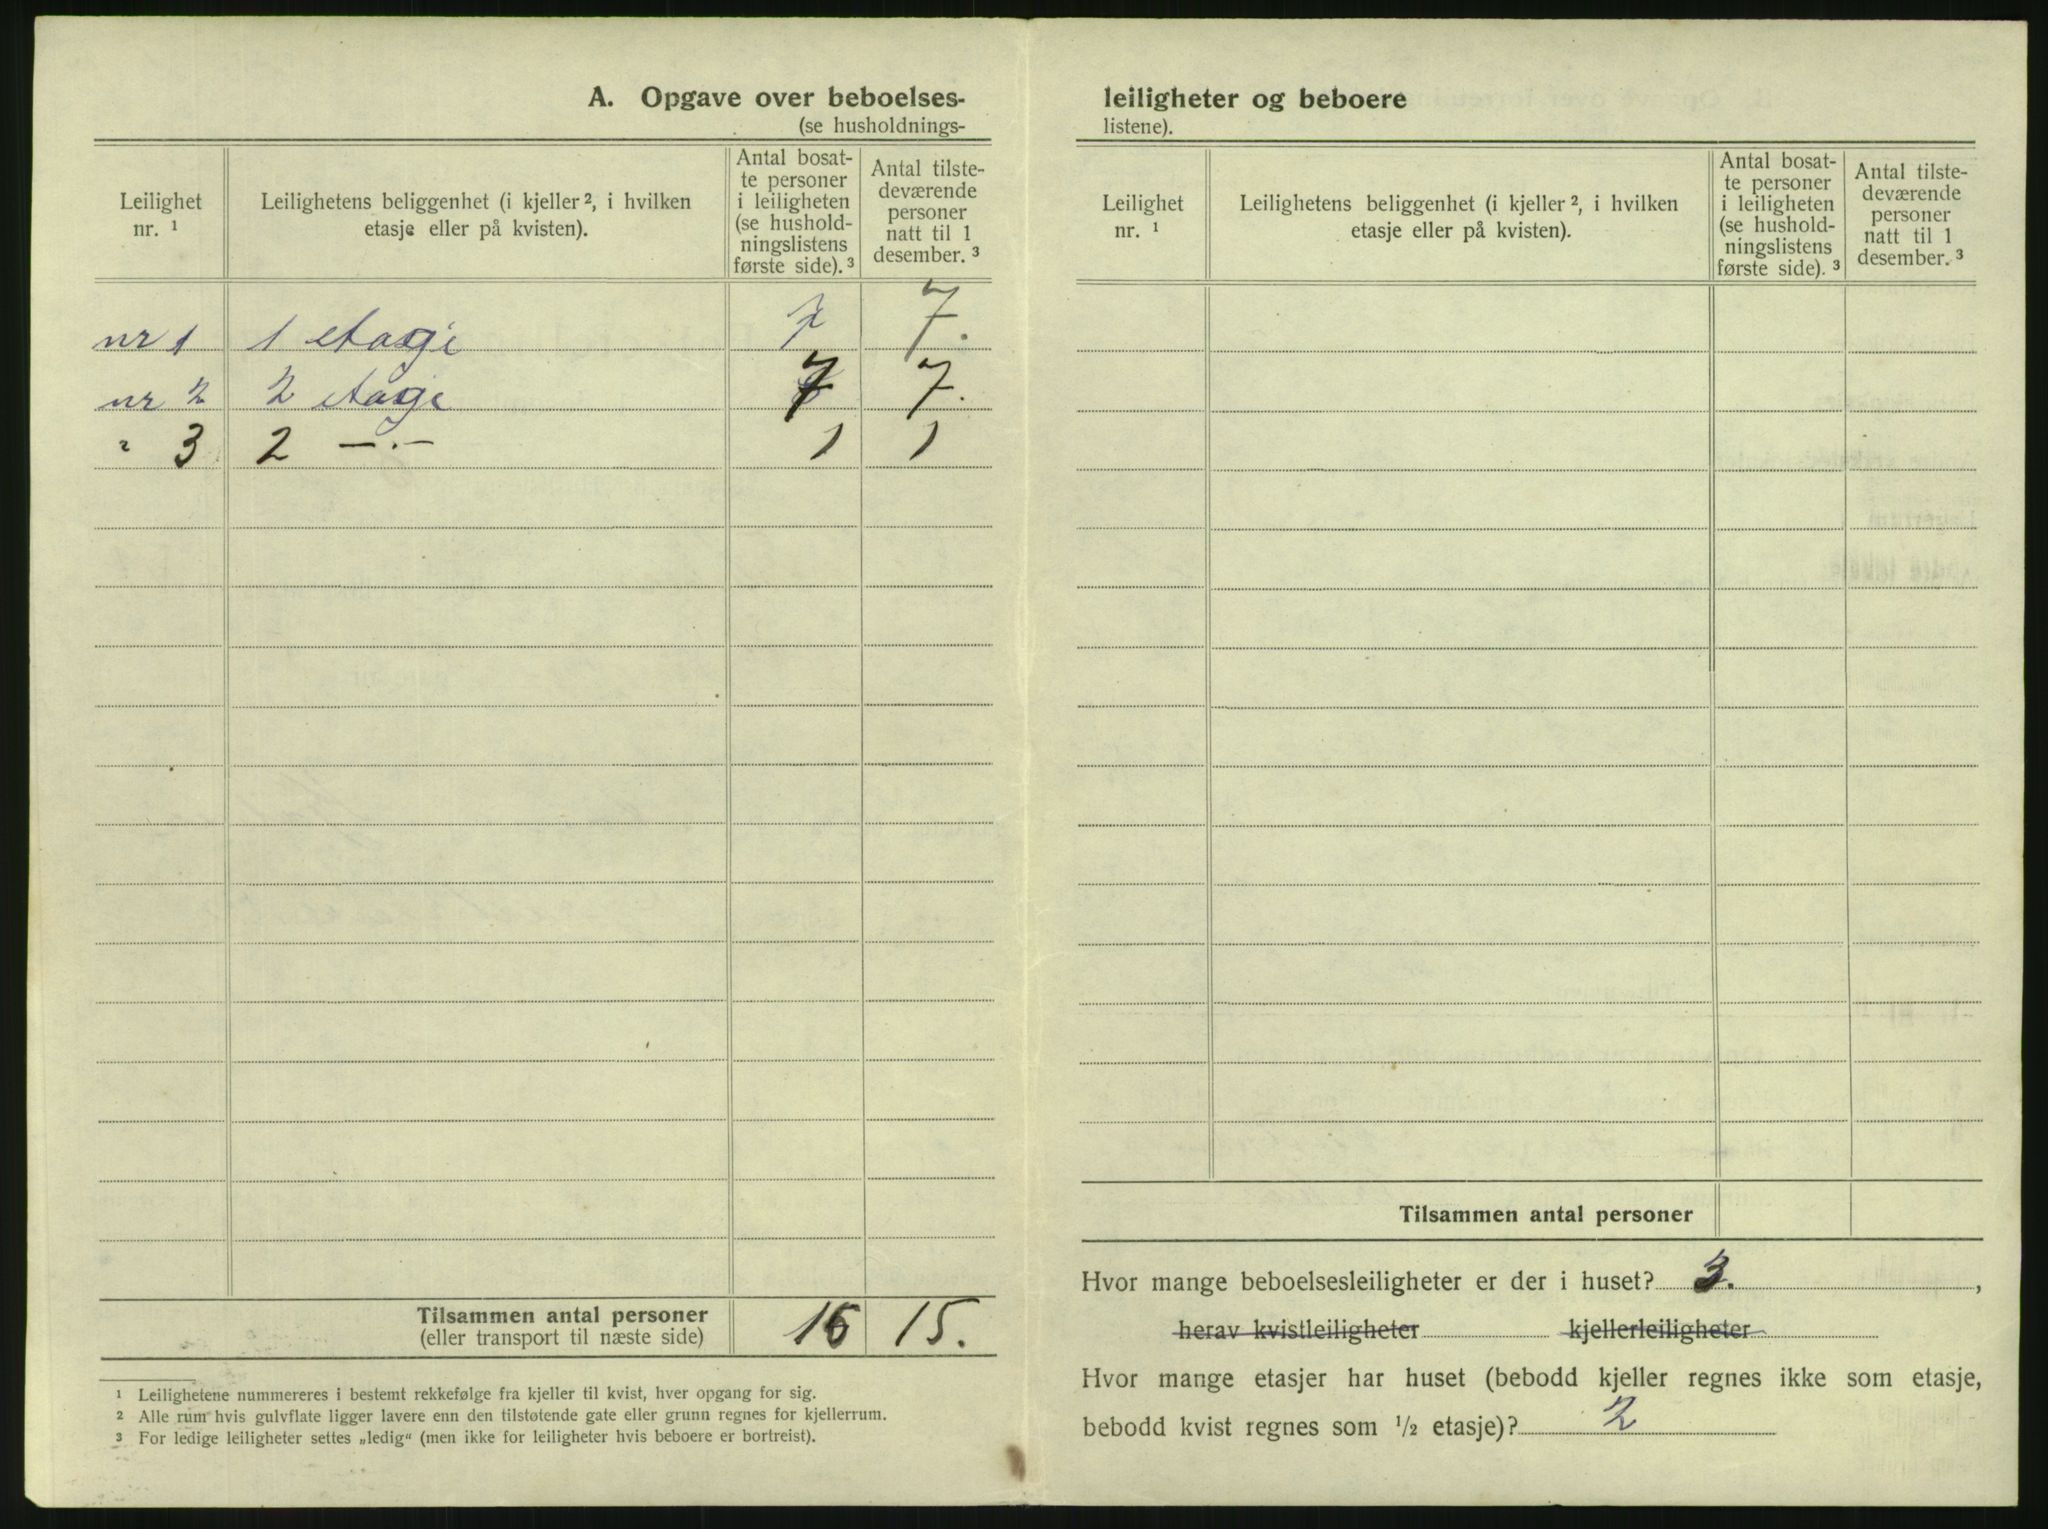 A. Opgave over beboelses-
(se husholdnings-
Leilighet nr. ¹
Leilighetens beliggenhet (i kjeller ², i hvilken etasje eller på kvisten).
Antal bosat-
te personer
i leiligheten
(se hushold-
ningslistens
første side). ³
Antal tilste-
deværende
personer
natt til 1
desember. ³
nr 1 1 etagi 7 7.
nr 2 2 etagi 7 7.
" 3 2 —·— 1 1
Tilsammen antal personer 15.
(eller transport til næste side)
¹ Leilighetene nummereres i bestemt rekkefølge fra kjeller til kvist, hver opgang for sig.
² Alle rum hvis gulvflate ligger lavere enn den tilstøtende gate eller grunn regnes for kjellerrum.
³ For ledige leiligheter settes „ledig“ (men ikke for leiligheter hvis beboere er bortreist).
leiligheter og beboere
listene).
Leilighet nr. ¹
Leilighetens beliggenhet (i kjeller ², i hvilken etasje eller på kvisten).
Antal bosat-
te personer
i leiligheten
(se hushold-
ningslistens
første side). ³
Antal tilste-
deværende
personer
natt til 1
desember. ³
Tilsammen antal personer
Hvor mange beboelsesleiligheter er der i huset? 3. ,
herav kvistleiligheter kjellerleiligheter
Hvor mange etasjer har huset (bebodd kjeller regnes ikke som etasje,
bebodd kvist regnes som ½ etasje)? 2